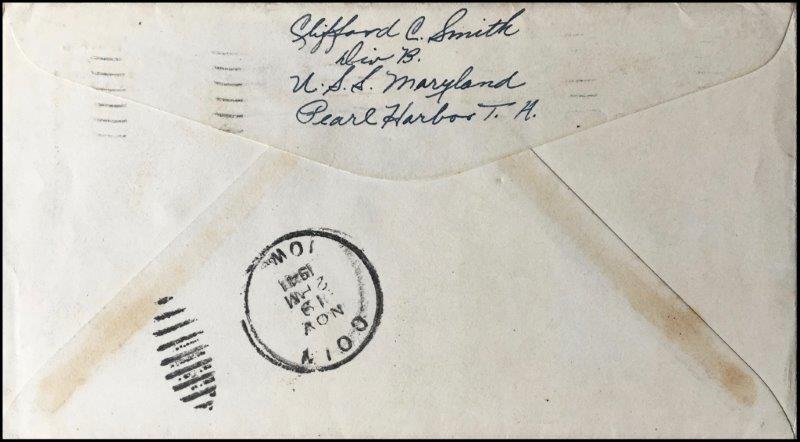 Clifford C. Smith
Div B.
U.S.S. Maryland
Pearl Harbor T. H.
NOV
19
1941